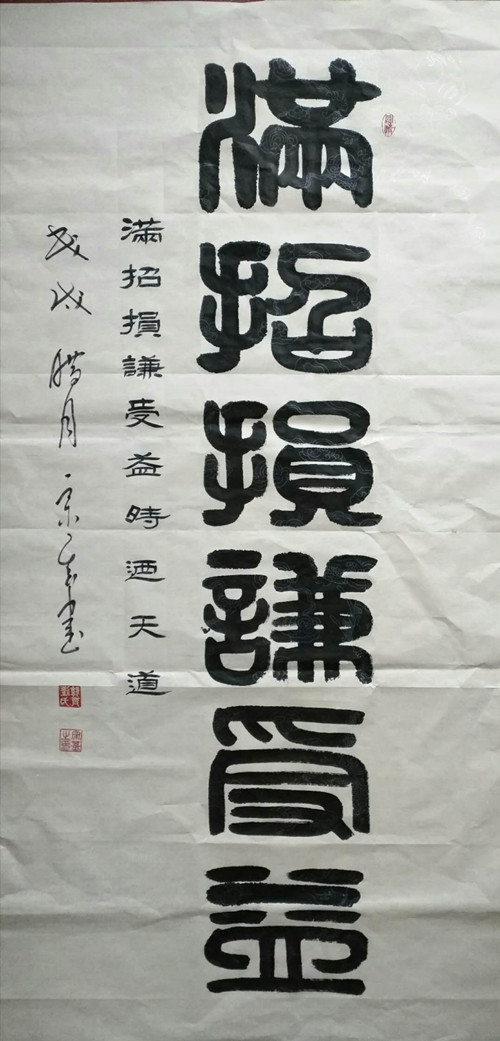 滿招損謙受益
滿招損謙受益時迺天道
戊戌腊月
書